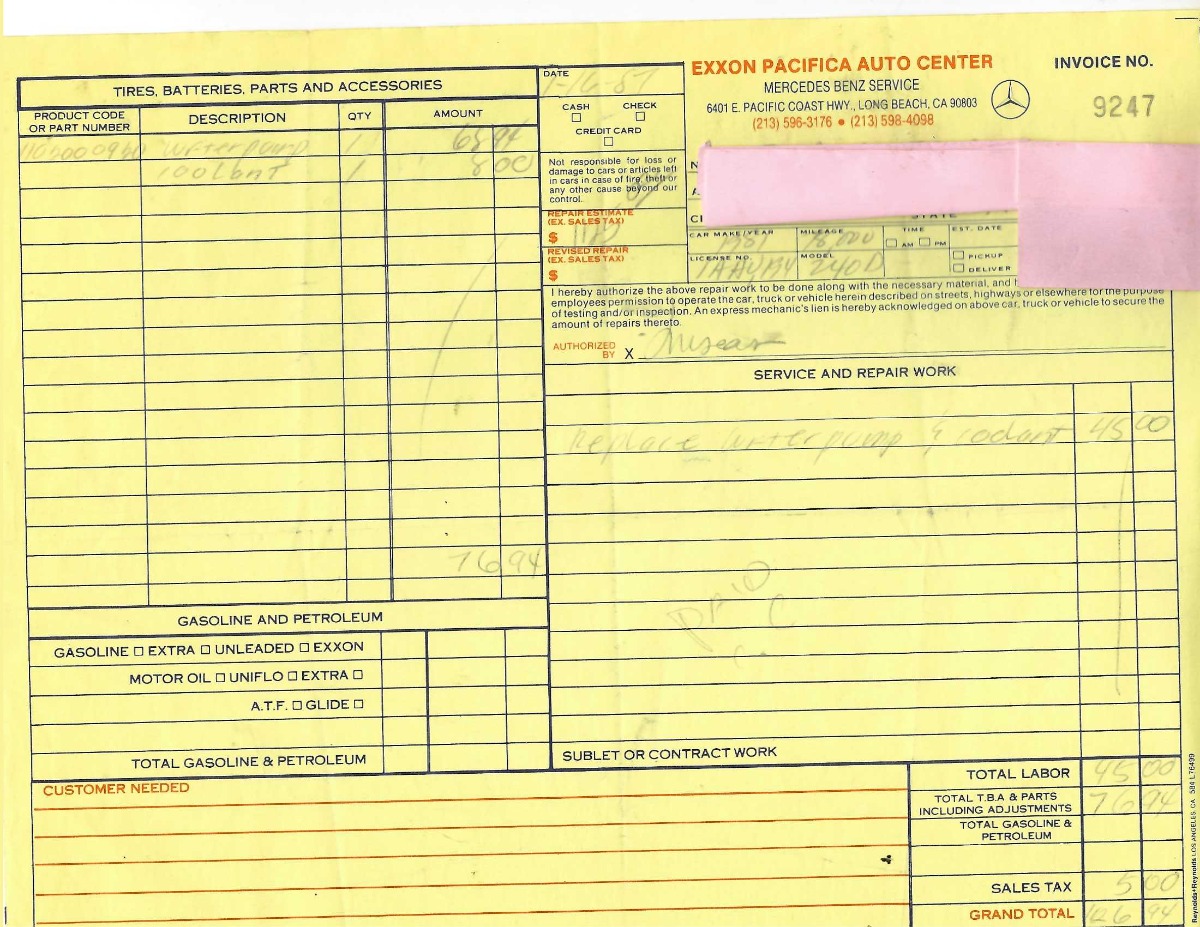 TIRES, BATTERIES, PARTS AND ACCESSORIES
PRODUCT CODE OR PART NUMBER DESCRIPTION QTY AMOUNT
waterpump 1 68 94
coolant 1 8 00
76 94
DATE
1-16-87
CASH CHECK
CREDIT CARD
Not responsible for loss or
damage to cars or articles left
in cars in case of fire, theft or
any other cause beyond our
control.
REPAIR ESTIMATE
(EX. SALES TAX)
$
REVISED REPAIR
(EX. SALES TAX)
$
EXXON PACIFICA AUTO CENTER
MERCEDES BENZ SERVICE
6401 E. PACIFIC COAST HWY., LONG BEACH, CA 90803
(213) 596-3176 • (213) 598-4098
INVOICE NO.
9247
STATE
CAR MAKE/YEAR MILEAGE TIME EST. DATE
1981 AM PM
LICENSE NO. MODEL PICKUP
240D DELIVER
I hereby authorize the above repair work to be done along with the necessary material, and
employees permission to operate the car, truck or vehicle herein described on streets, highways or elsewhere for the purpose
of testing and/or inspection. An express mechanic's lien is hereby acknowledged on above car, truck or vehicle to secure the
amount of repairs thereto.
AUTHORIZED
BY X
SERVICE AND REPAIR WORK
Replace waterpump & 45 00
PAID
SUBLET OR CONTRACT WORK
GASOLINE AND PETROLEUM
GASOLINE □ EXTRA □ UNLEADED □ EXXON
MOTOR OIL □ UNIFLO □ EXTRA □
A.T.F. □ GLIDE □
TOTAL GASOLINE & PETROLEUM
CUSTOMER NEEDED
TOTAL LABOR 45 00
TOTAL T.B.A & PARTS
INCLUDING ADJUSTMENTS 76 94
TOTAL GASOLINE &
PETROLEUM
SALES TAX 5 00
GRAND TOTAL 126 94
Reynolds+Reynolds LOS ANGELES, CA 584 L76499